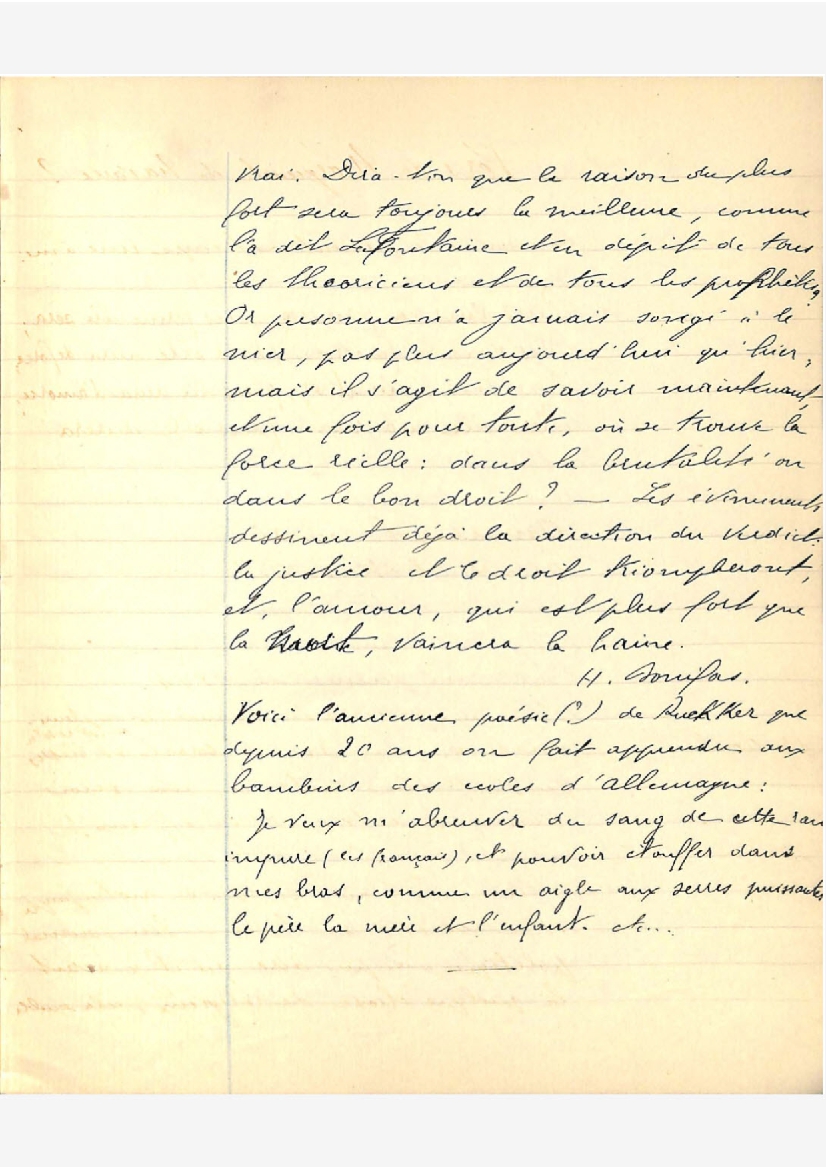 vrai. Dira-t-on que la raison du plus
fort sera toujours la meilleure, comme
l'a dit LaFontaine et en dépit de tous
les théoriciens et de tous les prophètes,
Or personne n'a jamais songé à le
nier, pas plus aujourd'hui qu'hier,
mais il s'agit de savoir maintenant,
et une fois pour toute, où se trouve la
force réelle : dans la brutalité ou
dans le bon droit ? — Les évènements
dessinent déjà la direction du verdict:
la justice et le droit triompheront,
et, l'amour, qui est plus fort que
la mort, vaincra la haine.
H. Bonifas.
Voici l'ancienne poésie(?) de Ruckker que
depuis 20 ans on fait apprendre aux
bambins des écoles d'Allemagne :
Je veux m'abreuver du sang de cette
impure (les français), et pouvoir étouffer dans
mes bras, comme un aigle aux serres puissantes
le père la mère et l'enfant. etc...